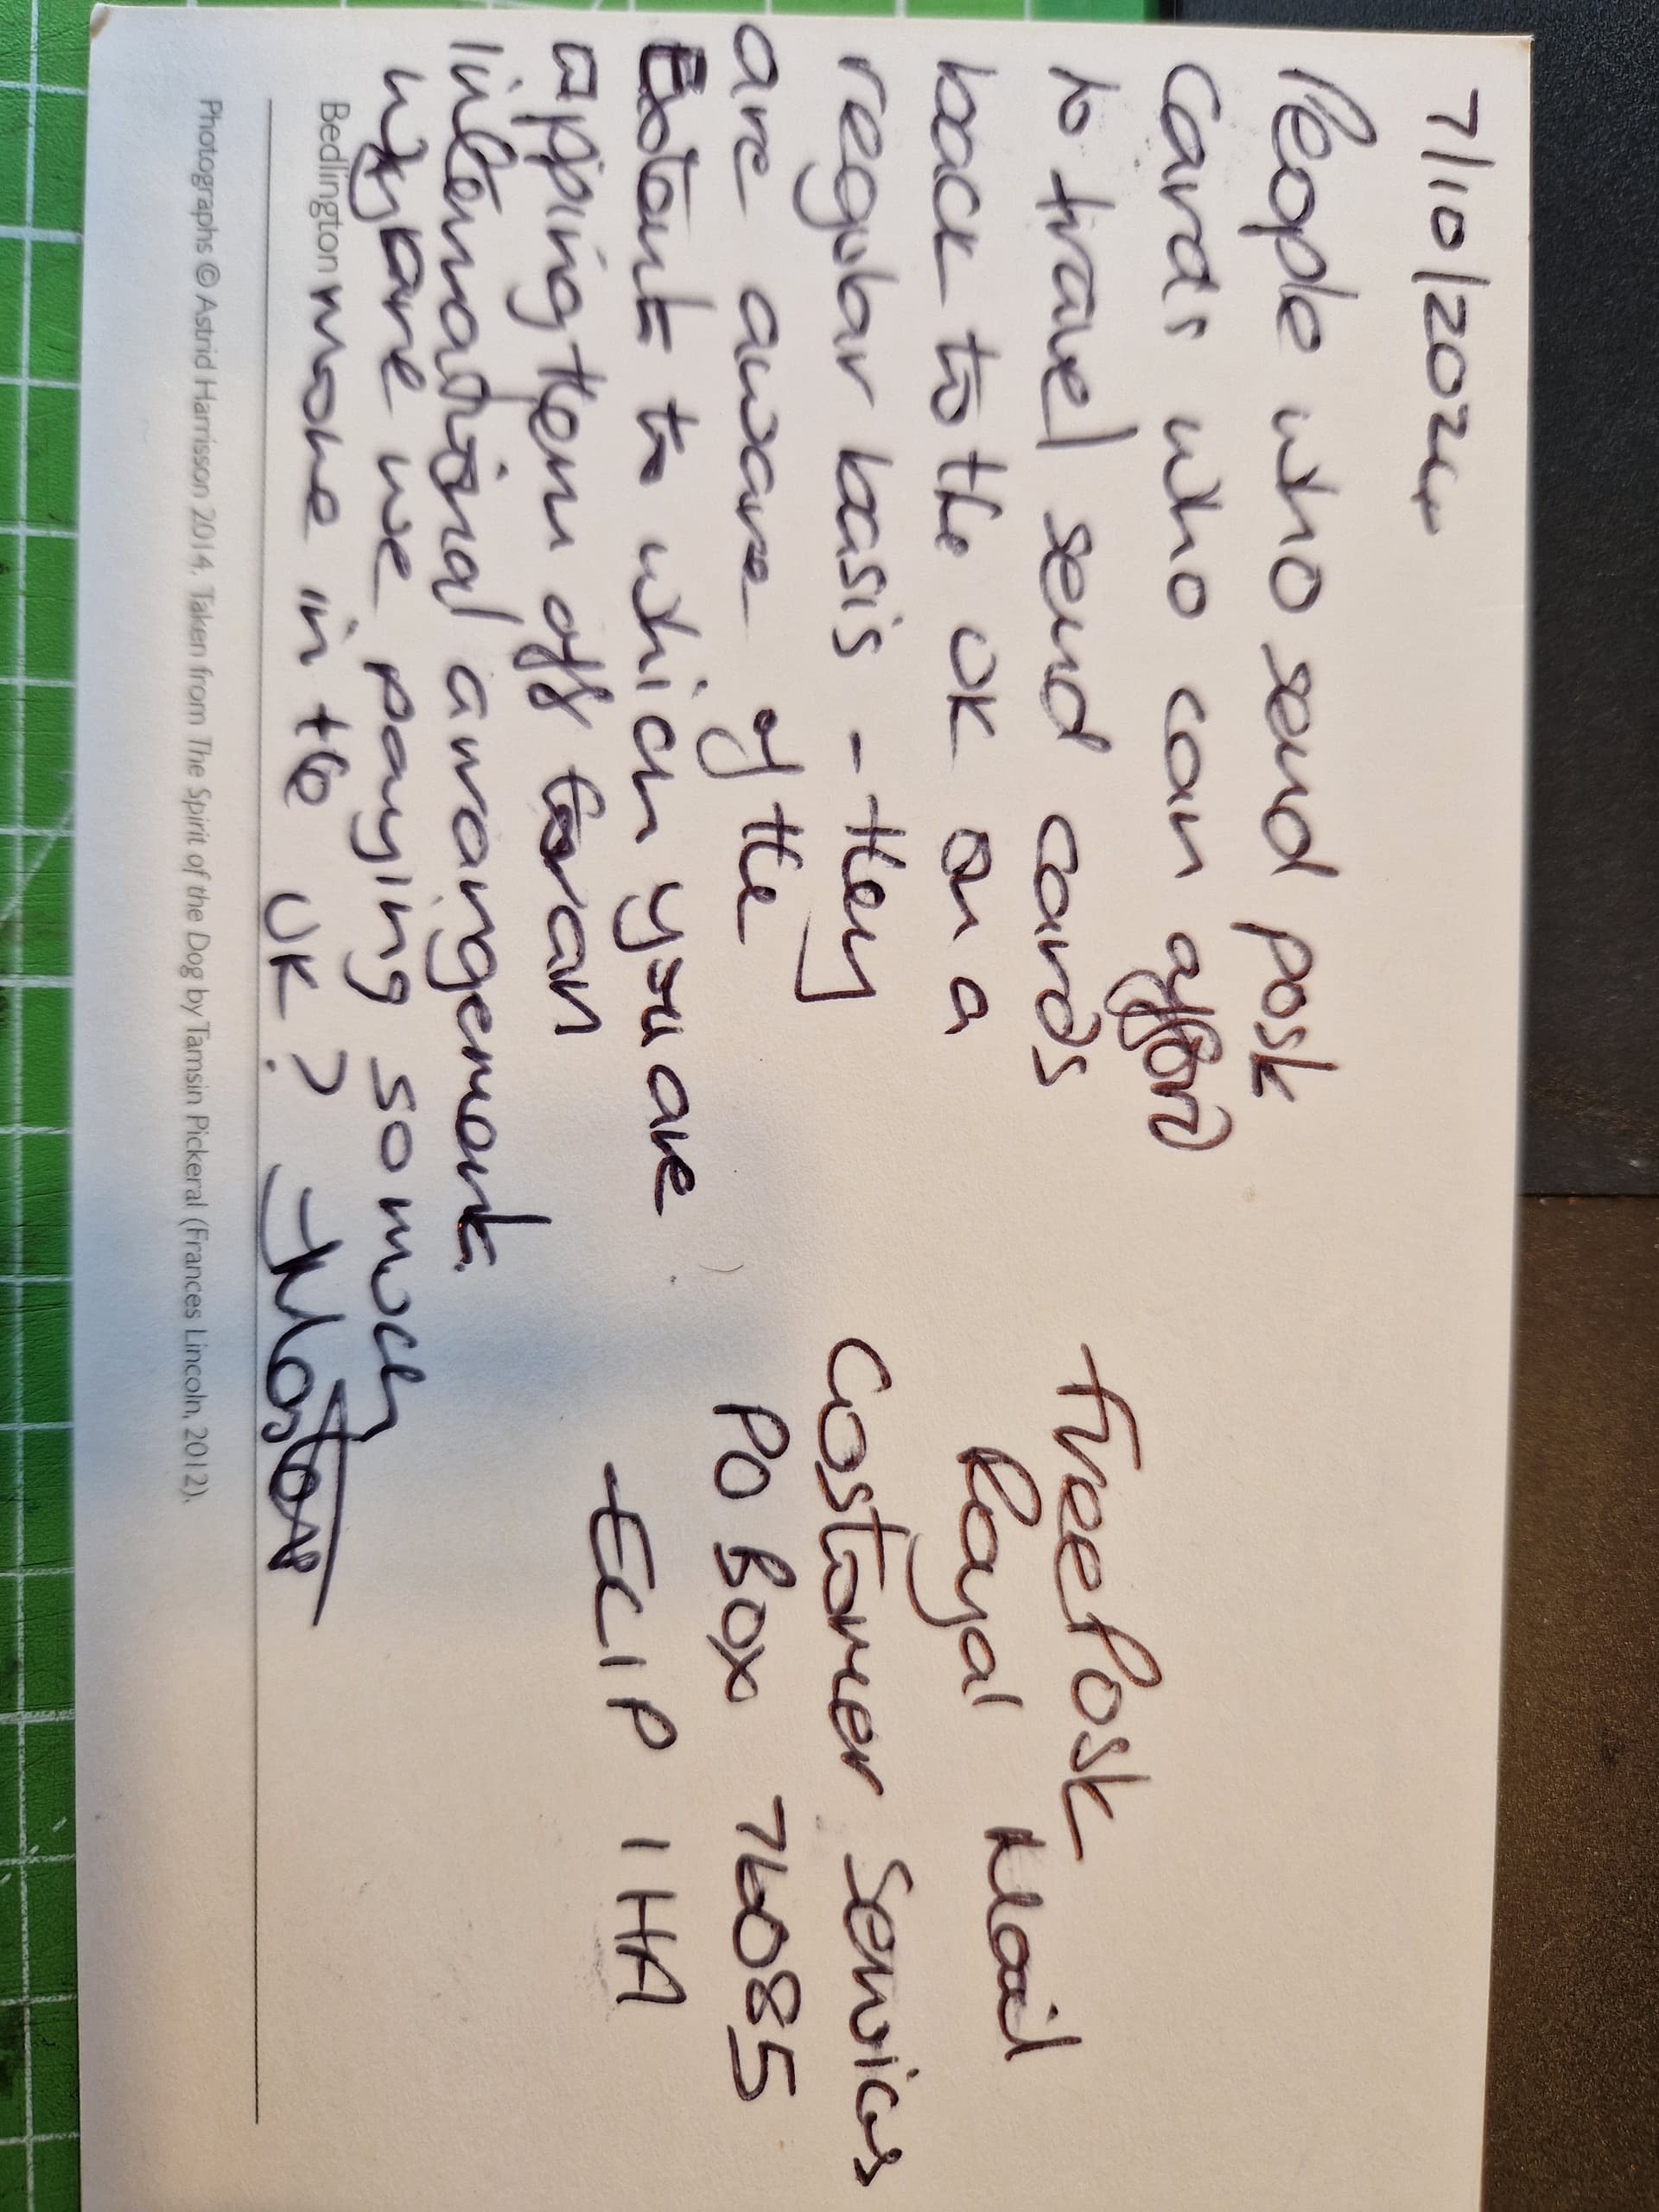 7/10/2024
People who send post
cards who can afford
to travel send cards
back to the UK on a
regular basis - they
are aware of the
Extent to which you are
ripping them off for an
international arrangement.
why are we paying so much
more in the UK?
Freepost
Royal Mail
Customer Services
PO Box 76085
EC1P 1HA
Bedlington
Photographs © Astrid Harrisson 2014. Taken from The Spirit of the Dog by Tamsin Pickeral (Frances Lincoln, 2012).